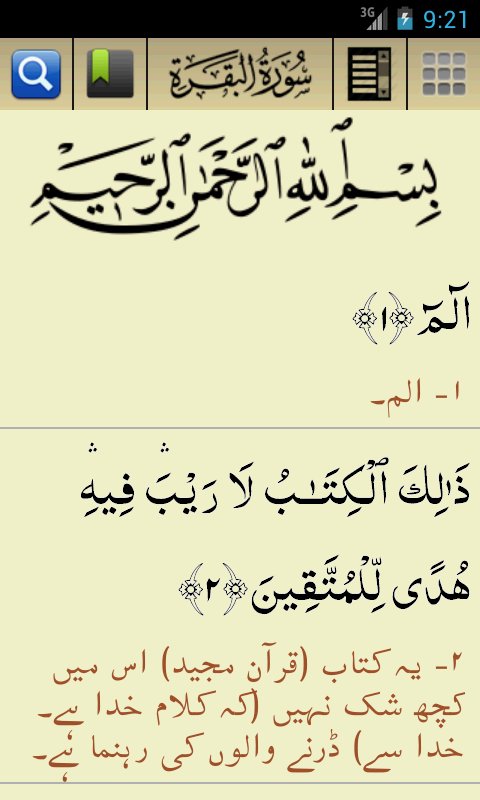 3G 9:21
سُورَةُ البَقَرَةِ
بِسْمِ ٱللَّهِ ٱلرَّحْمَٰنِ ٱلرَّحِيمِ
الٓمٓ ﴿١﴾
١- الم۔
ذَٰلِكَ ٱلْكِتَـٰبُ لَا رَيْبَ ۛ فِيهِ ۛ
هُدًى لِّلْمُتَّقِينَ ﴿٢﴾
٢- یہ کتاب (قرآن مجید) اس میں
کچھ شک نہیں (کہ کلام خدا ہے۔
خدا سے) ڈرنے والوں کی رہنما ہے۔